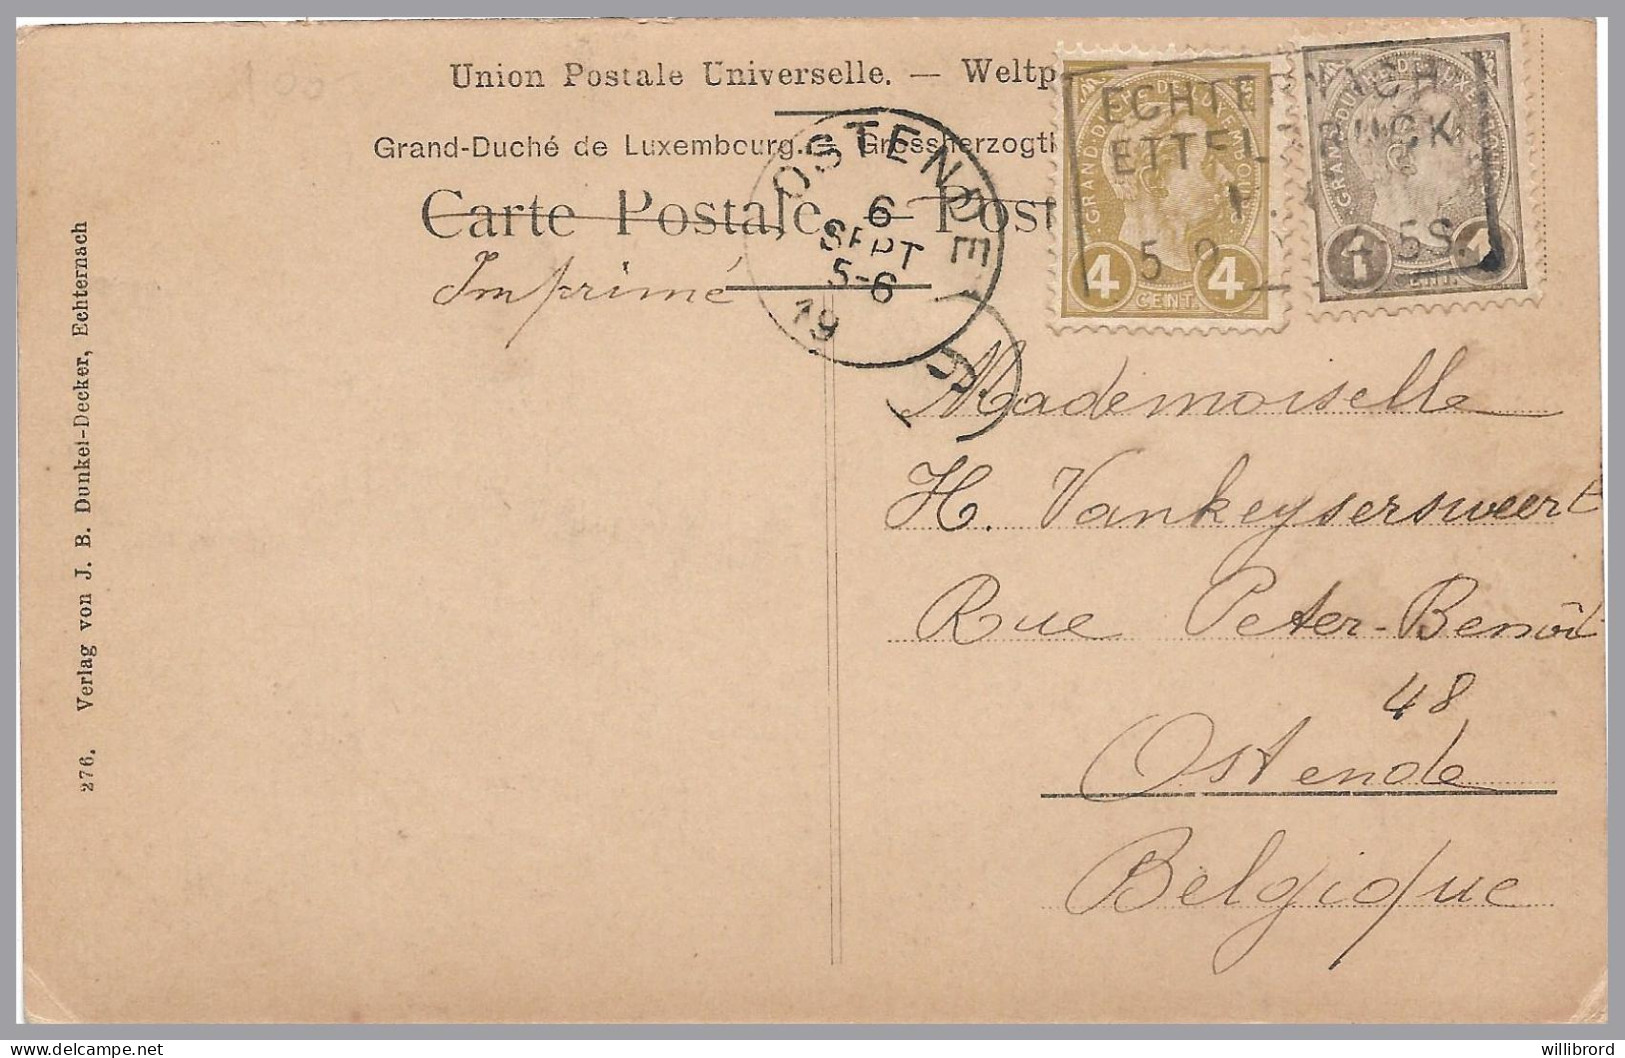 Union Postale Universelle. — Weltp
Grand-Duché de Luxembourg. — Grossherzogth
Carte Postale — Post
Imprimé
OSTENDE
6
SEPT
5-6
19
ECHTERNACH
ETTELBRUCK
1
5 9
5S.
GRAND-DUCHÉ DE LUXEMBOURG
4 CENT. 4
GRAND-DUCHÉ DE LUXEMBOURG
1 CENT. 1
Mademoiselle
H. Vankeyersweert
Rue Peter-Benoît
48
Ostende
Belgique
276. Verlag von J. B. Dunkel-Decker, Echternach
100
willibrord